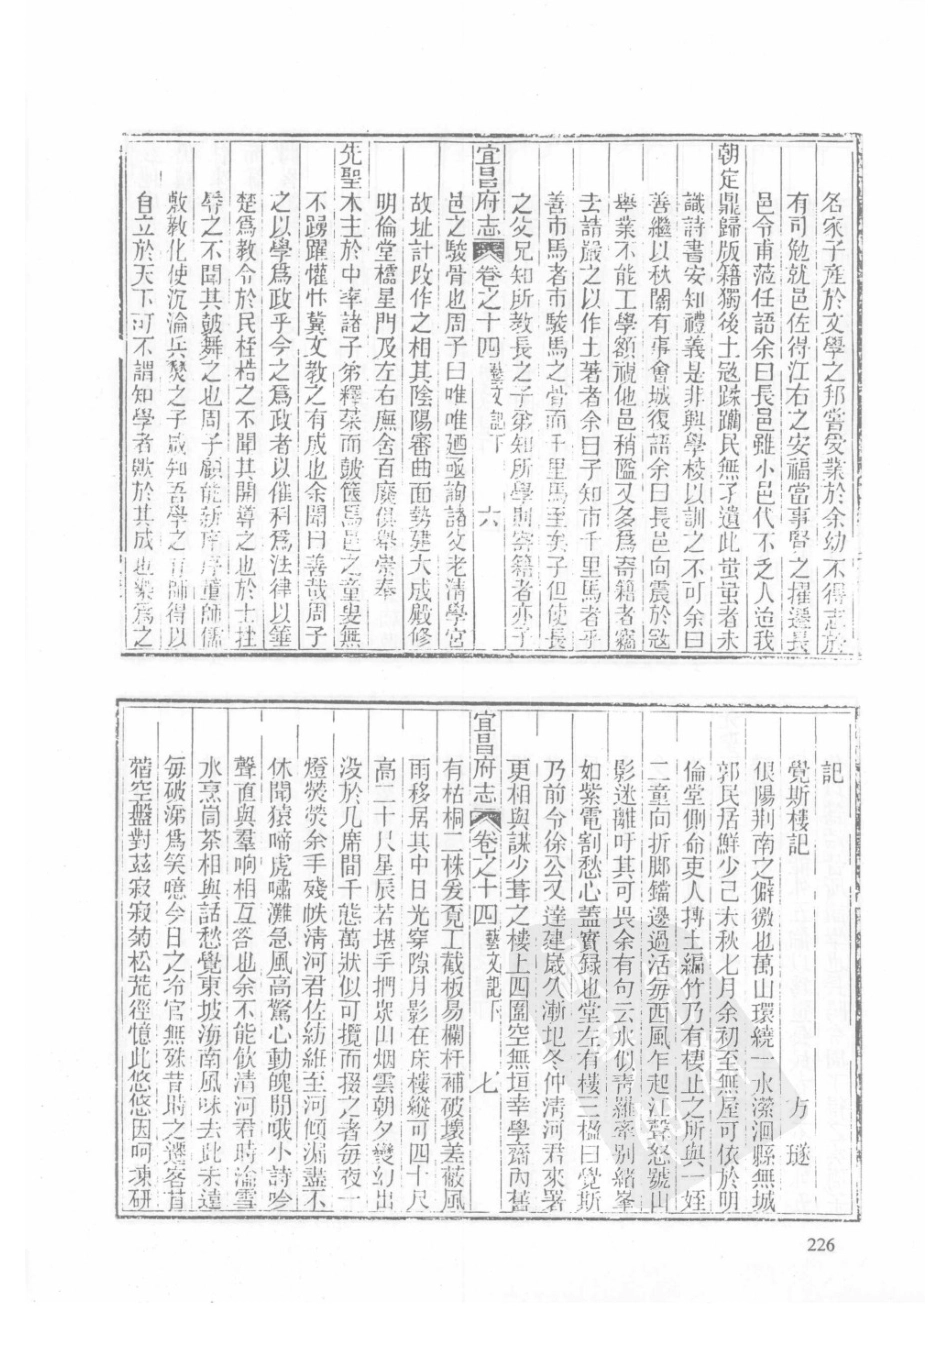 名家子產於文學之邦嘗受業於余幼不得志於
有司勉就邑佐得江右之安福當事賢之擢遷長
邑令甫蒞任語余曰長邑雖小邑代不乏人迨我
朝定鼎歸版籍獨後土寇蹂躪民無孑遺此蚩蚩者未
識詩書安知禮義是非興學校以訓之不可余曰
善繼以秋闈有事會城復語余曰長邑向震於寇
舉業不能工學額視他邑稍隘又多為寄籍者竊
去請嚴之以作土著者余曰子知市千里馬者乎
善市馬者市駿馬之骨而千里馬至矣子但使長
之父兄知所教長之子弟知所學則寄籍者亦子
宜昌府志 卷之十四 藝文記下 六
邑之駿骨也周子曰唯唯廼亟詢諸父老清學宮
故址計改作之相其陰陽審曲面勢建大成殿修
明倫堂櫺星門及左右廡舍百廢俱舉崇奉
先聖木主於中率諸子弟釋菜而鼓篋焉邑之童叟無
不踴躍懽忭冀文教之有成也余聞曰善哉周子
之以學為政乎今之為政者以催科為法律以箠
楚為教令於民桎梏之不聞其開導之也於士拄
之不聞其鼓舞之也周子顧能新庠序董師儒
敷教化使沉淪兵燹之子咸知吾學之有師得以
自立於天下可不謂知學者歟於其成也樂為之
記
覺斯樓記 方 璲
佷陽荆南之僻徼也萬山環繞一水瀠洄縣無城
郭民居鮮少己未秋七月余初至無屋可依於明
倫堂側命吏人摶土編竹乃有棲止之所與一姪
二童向折脚鐺邊過活每西風乍起江聲怒號山
影迷離吁其可畏余有句云水似青羅牽別緒峯
如紫電割愁心蓋實録也堂左有樓三楹曰覺斯
乃前令徐公又達建歲久漸圮冬仲淸河君來署
更相與謀少葺之樓上四圍空無垣幸學齋內舊
宜昌府志 卷之十四 藝文記下 七
有枯桐二株爰覔工截板易欄杆補破壞差蔽風
雨移居其中日光穿隙月影在床樓縱可四十尺
高二十尺星辰若堪手捫衆山烟雲朝夕變幻出
没於几席間千態萬狀似可攬而掇之者每夜一
燈熒熒余手殘帙淸河君佐紡維至河傾漏盡不
休聞猿啼虎嘯灘急風高驚心動魄閒哦小詩吟
聲直與羣响相互答也余不能飲清河君時瀹雪
水烹茼茶相與話愁覺東坡海南風味去此未遠
每破涕爲笑噫今日之冷官無殊昔時之遷客苜
蓿空盤對茲寂寂菊松荒徑憶此悠悠因呵凍研
226